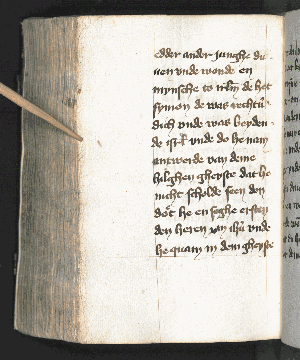 edder ander junghe du
uen vnde wonde en
mynsche to irlm de het
symon de was rechtu
dich vnde was beyden
de isrl vnde do he nam
antwerde van deme
hilghen gheyste dat he
nicht scholde seen den
dot he en seghe ersten
den heren xpm ihm vnde
he quam in dem gheyste